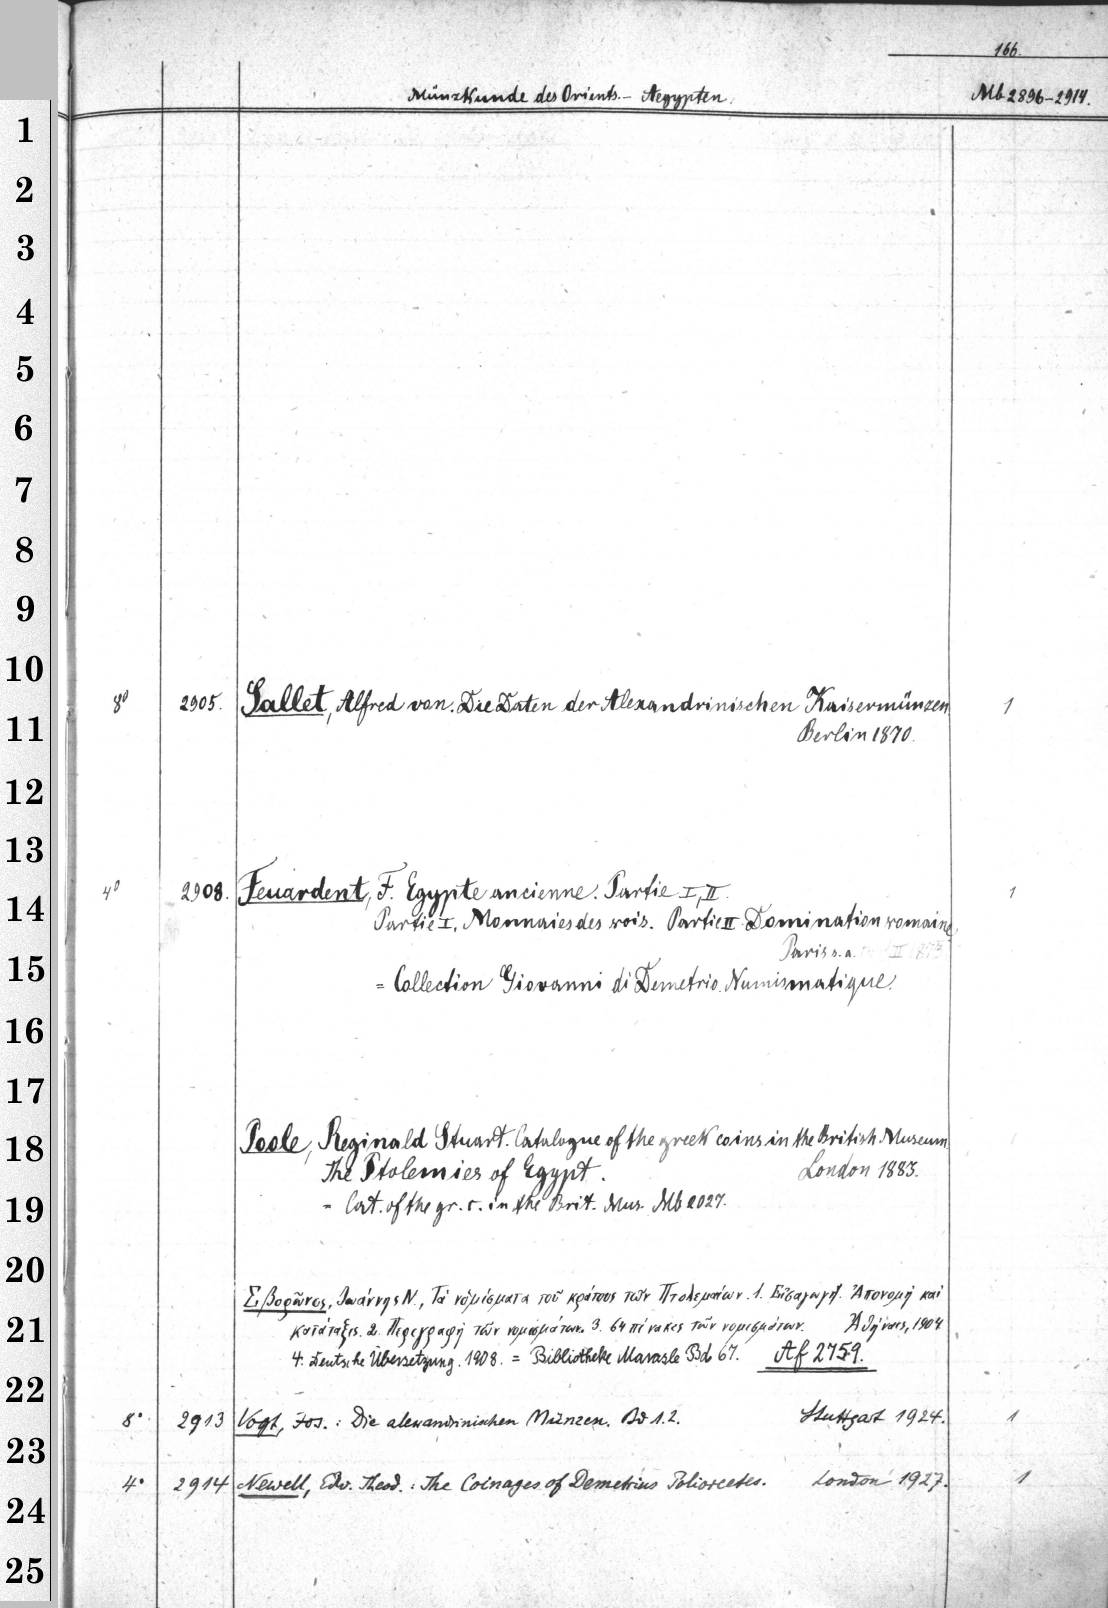 166.
Münzkunde des Orients. – Aegypten. Mb 2896–2914.
1
2
3
4
5
6
7
8
9
10
8° 2905. Sallet, Alfred von. Die Daten der Alexandrinischen Kaisermünzen 1
11
Berlin 1870.
12
13
4° 2908. Feuardent, F. Egypte ancienne. Partie I, II. 1
14
Partie I. Monnaies des rois. Partie II Domination romaine.
Paris s. a. II 1873
15
= Collection Giovanni di Demetrio. Numismatique.
16
17
Poole, Reginald Stuart. Catalogue of the greek coins in the British Museum.
18
The Ptolemies of Egypt. London 1883.
19
= Cat. of the gr. c. in the Brit. Mus. Mb 2027.
20
Σβορῶνος, Ἰωάννης Ν., Τὰ νομίσματα τοῦ κράτους τῶν Πτολεμαίων. 1. Εἰσαγωγή. Ἀπονομή καὶ
21
κατάταξις. 2. Περιγραφὴ τῶν νομισμάτων. 3. 64 πίνακες τῶν νομισμάτων. Ἀθήναις, 1904
4. Deutsche Übersetzung. 1908. = Bibliotheke Marasle Bd 67. Af 2759.
22
8° 2913 Vogt, Jos.: Die alexandrinischen Münzen. Bd 1. 2. Stuttgart 1924. 1
23
4° 2914 Newell, Edw. Theod.: The Coinages of Demetrius Poliorcetes. London 1927. 1
24
25